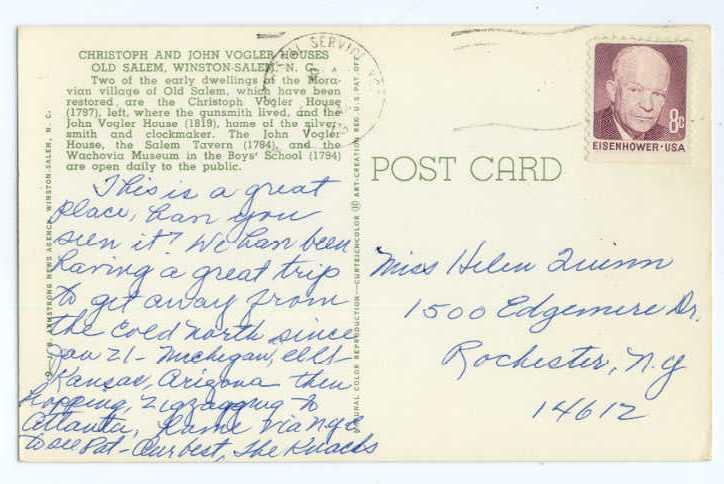 CHRISTOPH AND JOHN VOGLER HOUSES
OLD SALEM, WINSTON-SALEM, N. C.
Two of the early dwellings of the Mora-
vian village of Old Salem, which have been
restored are the Christoph Vogler House
(1797), left, where the gunsmith lived, and the
John Vogler House (1819), home of the silver-
smith and clockmaker. The John Vogler
House, the Salem Tavern (1784), and the
Wachovia Museum in the Boys' School (1794)
are open daily to the public.
This is a great
place, have you
seen it? We have been
having a great trip
to get away from
the cold north since
Jan 21 - Michigan,
Kansas, Arizona then
hopping, zigzagging to
Atlanta, home via
to see Pat - Our best, The Knacks
ARMSTRONG NEWS AGENCY, WINSTON-SALEM, N. C.
NATURAL COLOR REPRODUCTION—CURTEICHCOLOR ® ART-CREATION REG. U.S. PAT. OFF.
SERVICE
POST CARD
8c
EISENHOWER·USA
Miss Helen Quinn
1500 Edgemere Dr.
Rochester, N.Y
14612